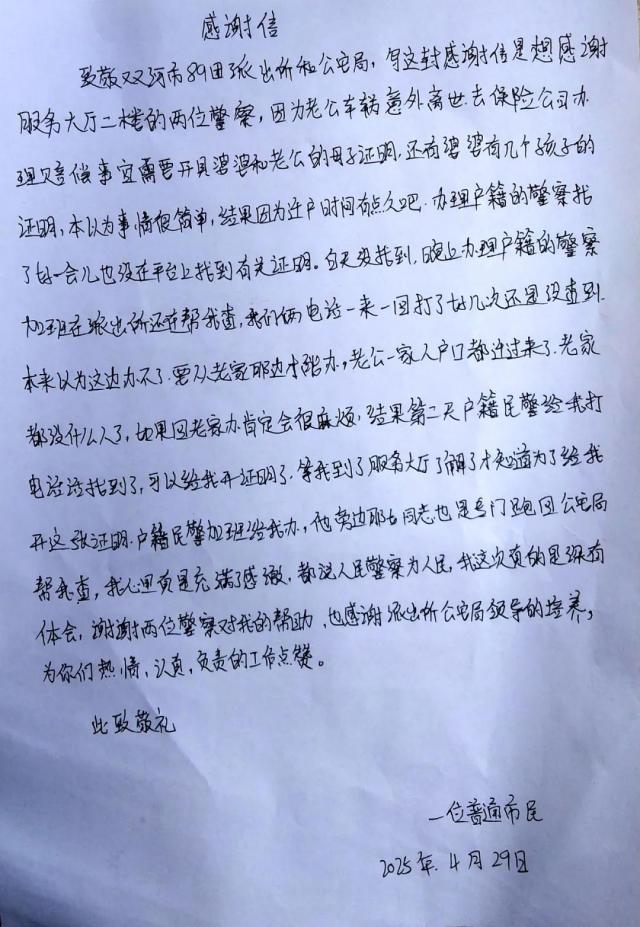 感谢信
致敬双河市89团派出所和公安局，写这封感谢信是想感谢
服务大厅二楼的两位警察，因为老公车辆意外离世.去保险公司办
理赔偿事宜需要开具婆婆和老公的母子证明，还有婆婆有几个孩子的
证明，本以为事情很简单，结果因为迁户时间有点久吧.办理户籍的警察找
了好一会儿也没在平台上找到有关证明。白天没找到，晚上办理户籍的警察
加班在派出所还在帮我查，我们俩电话一来一回打了好几次还是没查到.
本来以为这边办不了.要从老家那边才能办，老公一家人户口都迁过来了.老家
都没什么人了，如果回老家办肯定会很麻烦，结果第二天户籍民警给我打
电话说找到了，可以给我开证明了.等我到了服务大厅了解了才知道为了给我
开这张证明.户籍民警加班给我办，他旁边那女同志也是专门跑回公安局
帮我查，我心里真是充满了感激，都说人民警察为人民，我这次真的是深有
体会，谢谢两位警察对我的帮助，也感谢派出所公安局领导的培养，
为你们热情，认真，负责的工作点赞。
此致敬礼
一位普通市民
2025年4月29日